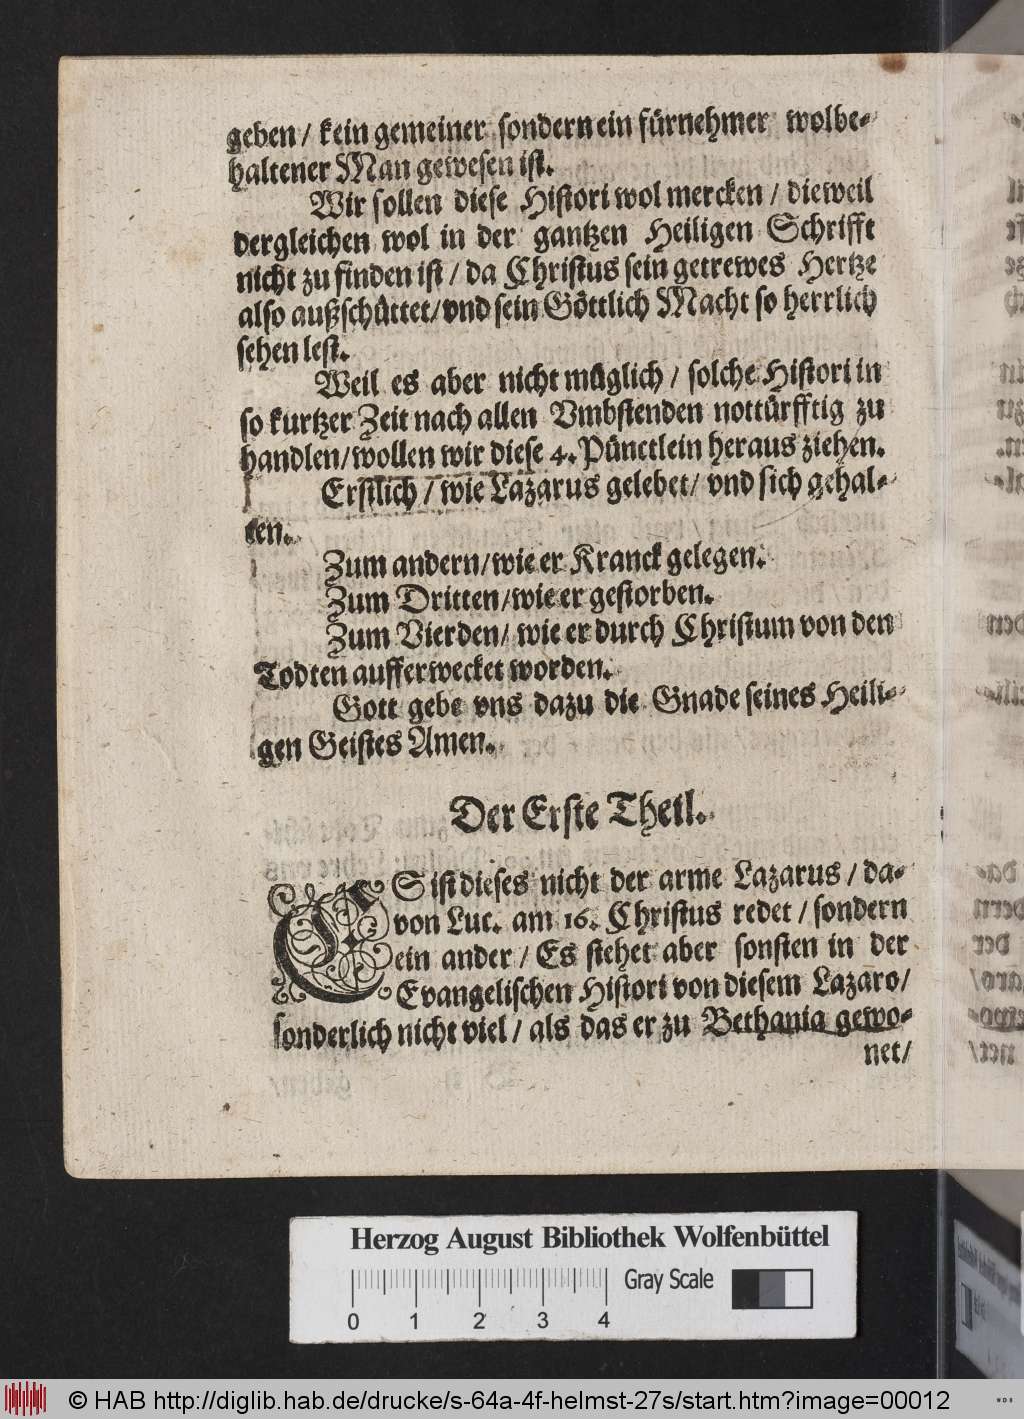 geben / kein gemeiner sondern ein fürnehmer wolbe-
haltener Man gewesen ist.
Wir sollen diese Histori wol mercken / dieweil
dergleichen wol in der gantzen Heiligen Schrifft
nicht zu finden ist / da Christus sein getrewes Hertze
also außschüttet / vnd sein Göttlich Macht so herrlich
sehen lest.
Weil es aber nicht müglich / solche Histori in
so kurtzer Zeit nach allen Vmbstenden nottürfftig zu
handlen / wollen wir diese 4. Pünctlein heraus ziehen.
Erstlich / wie Lazarus gelebet / vnd sich gehal-
ten.
Zum andern / wie er Kranck gelegen.
Zum Dritten / wie er gestorben.
Zum Vierden / wie er durch Christum von den
Todten aufferwecket worden.
Gott gebe vns dazu die Gnade seines Heili-
gen Geistes Amen.
Der Erste Theil.
ES ist dieses nicht der arme Lazarus / da-
von Luc. am 16. Christus redet / sondern
ein ander / Es stehet aber sonsten in der
Evangelischen Histori von diesem Lazaro /
sonderlich nicht viel / als das er zu Bethania gewo-
net /
Herzog August Bibliothek Wolfenbüttel
Gray Scale
0 1 2 3 4
© HAB http://diglib.hab.de/drucke/s-64a-4f-helmst-27s/start.htm?image=00012